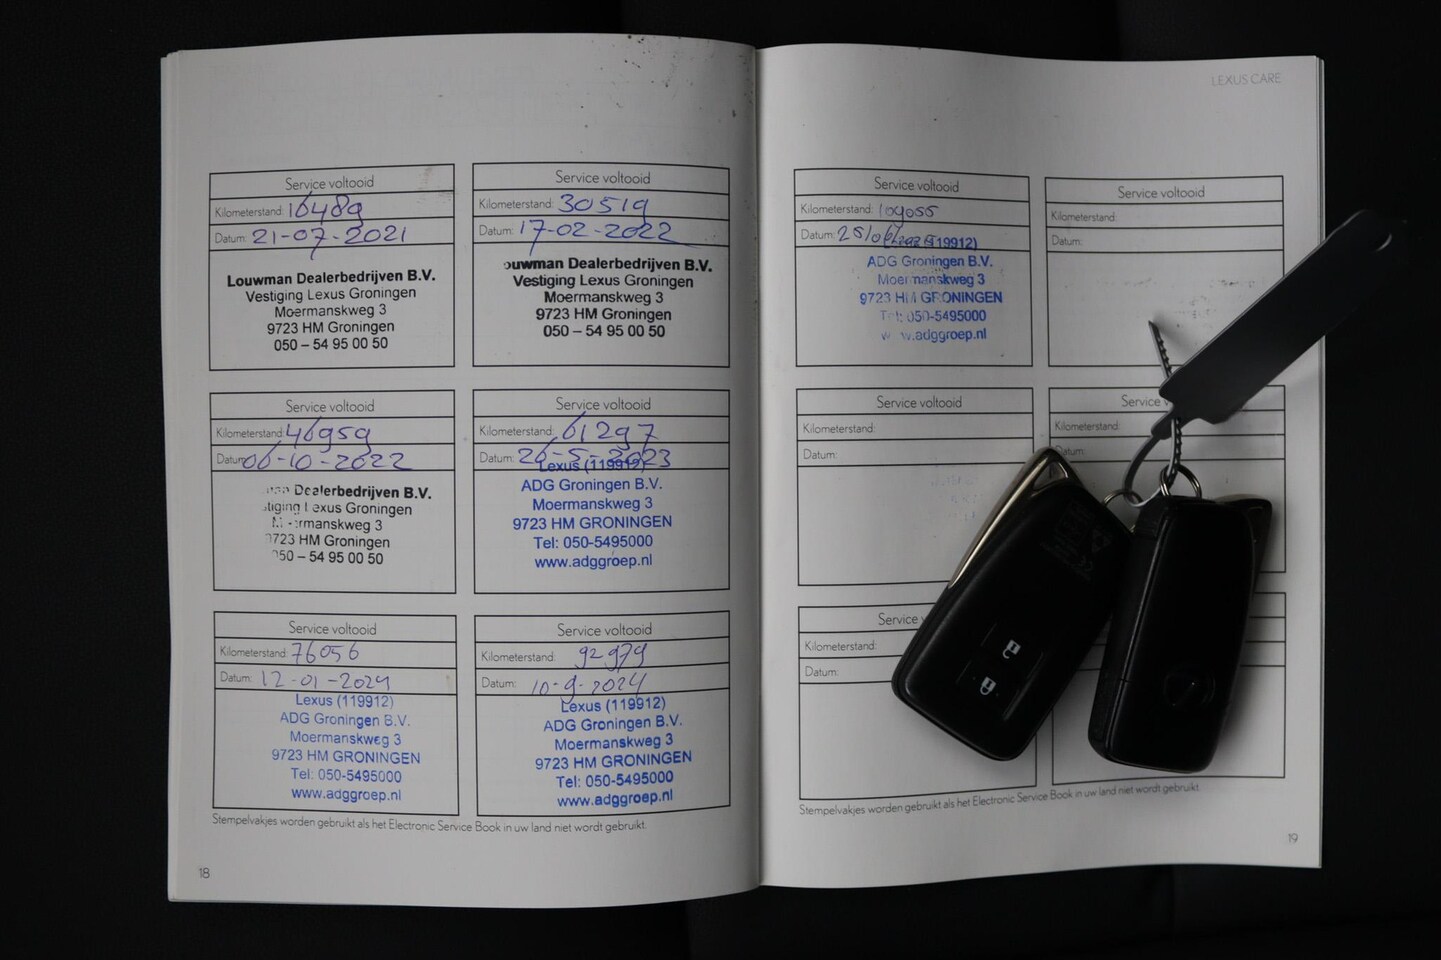 LEXUS CARE
Service voltooid
Kilometerstand: 16489
Datum: 21-07-2021
Louwman Dealerbedrijven B.V.
Vestiging Lexus Groningen
Moermanskweg 3
9723 HM Groningen
050 – 54 95 00 50
Service voltooid
Kilometerstand: 30519
Datum: 17-02-2022
ouwman Dealerbedrijven B.V.
Vestiging Lexus Groningen
Moermanskweg 3
9723 HM Groningen
050 – 54 95 00 50
Service voltooid
Kilometerstand: 46959
Datum: 06-10-2022
Dealerbedrijven B.V.
Lexus Groningen
rmanskweg 3
9723 HM Groningen
050 – 54 95 00 50
Service voltooid
Kilometerstand: 61297
Datum: 26-5-2023
Lexus (119912)
ADG Groningen B.V.
Moermanskweg 3
9723 HM GRONINGEN
Tel: 050-5495000
www.adggroep.nl
Service voltooid
Kilometerstand: 76056
Datum: 12-01-2024
Lexus (119912)
ADG Groningen B.V.
Moermanskweg 3
9723 HM GRONINGEN
Tel: 050-5495000
www.adggroep.nl
Service voltooid
Kilometerstand: 92979
Datum: 10-9-2024
Lexus (119912)
ADG Groningen B.V.
Moermanskweg 3
9723 HM GRONINGEN
Tel: 050-5495000
www.adggroep.nl
Stempelvakjes worden gebruikt als het Electronic Service Book in uw land niet wordt gebruikt.
18
Service voltooid
Kilometerstand: 109055
Datum:
(119912)
ADG Groningen B.V.
Moermanskweg 3
9723 HM GRONINGEN
Tel: 050-5495000
www.adggroep.nl
Service voltooid
Kilometerstand:
Datum:
Service voltooid
Kilometerstand:
Datum:
Service v
Kilometerstand:
Datum:
Service
Kilometerstand:
Datum:
Stempelvakjes worden gebruikt als het Electronic Service Book in uw land niet wordt gebruikt.
19